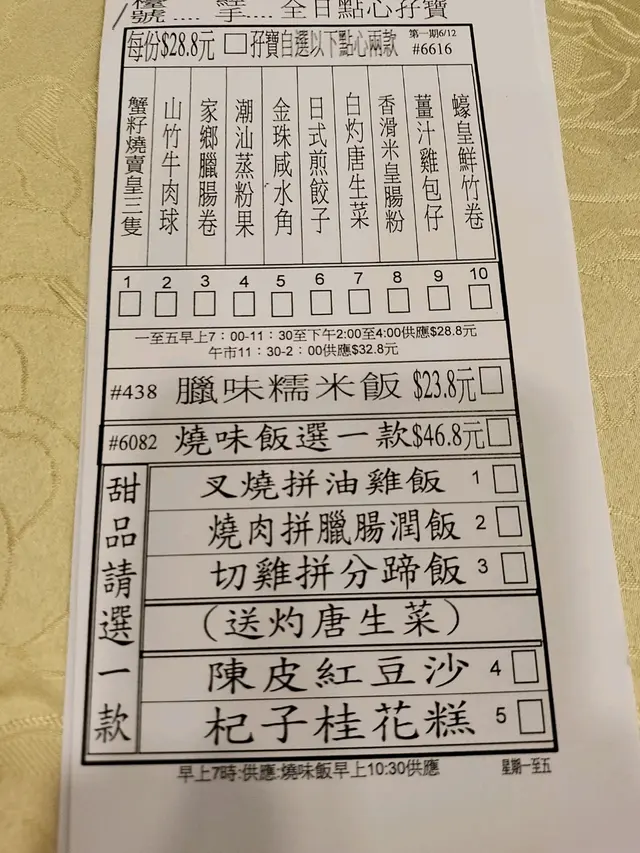 檯號.... 經手.... 全日點心孖寶
每份$28.8元 □孖寶自選以下點心兩款 第一期6/12 #6616
蟹籽燒賣皇三隻
山竹牛肉球
家鄉臘腸卷
潮汕蒸粉果
金珠咸水角
日式煎餃子
白灼唐生菜
香滑米皇腸粉
薑汁雞包仔
蠔皇鮮竹卷
1 2 3 4 5 6 7 8 9 10
一至五早上7：00-11：30至下午2:00至4:00供應$28.8元
午市11：30-2：00供應$32.8元
#438 臘味糯米飯 $23.8元□
#6082 燒味飯選一款$46.8元□
甜品請選一款
叉燒拼油雞飯 1 □
燒肉拼臘腸潤飯 2 □
切雞拼分蹄飯 3 □
（送灼唐生菜）
陳皮紅豆沙 4 □
杞子桂花糕 5 □
早上7時:供應:燒味飯早上10:30供應 星期一至五